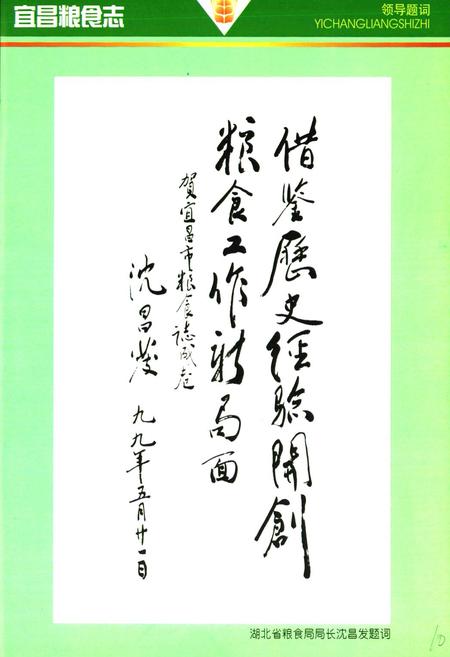 宜昌粮食志
领导题词
YICHANGLIANGSHIZHI
借鉴歷史经验開創
粮食工作新局面
贺宜昌市粮食誌成卷
沈昌发
九九年五月廿一日
湖北省粮食局局长沈昌发题词
10